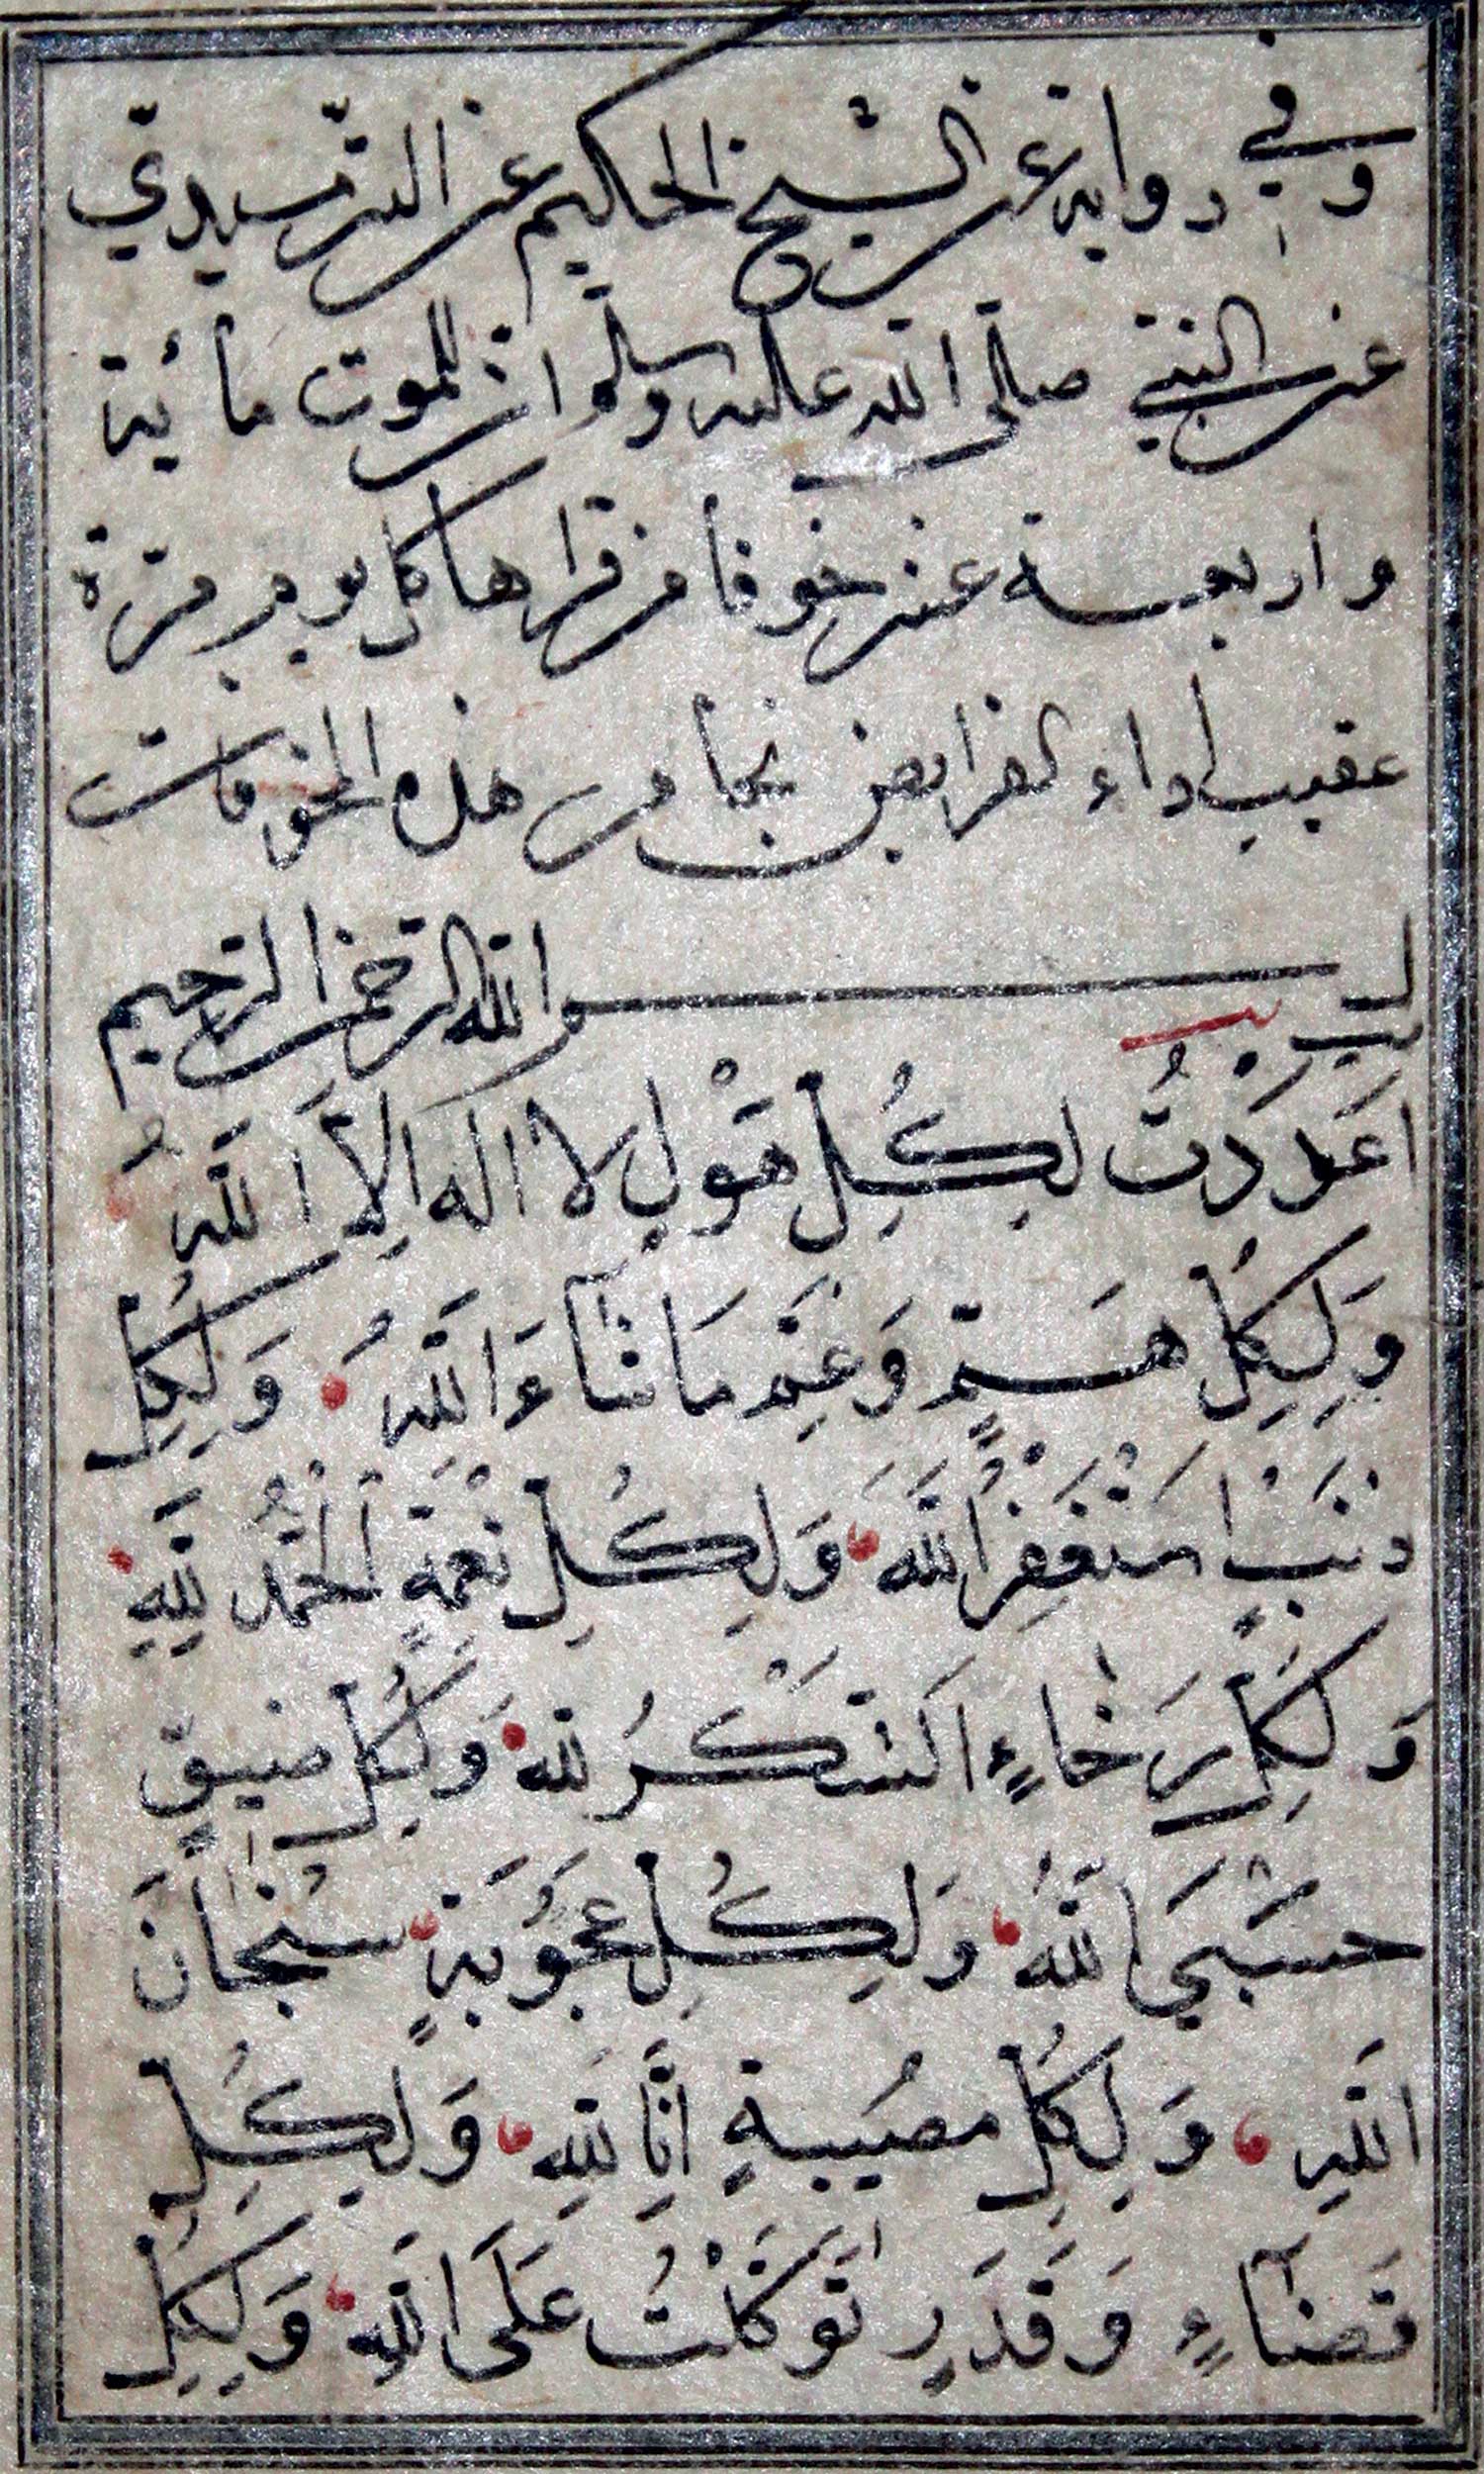 وفي رواية عن الشيخ الحكيم عن الترميدي
عن النبي صلى الله عليه وسلم ان للموت مائية
واربعة عشر خوفا من قراها كل يوم مرة
عقيب اداء الفرايض نجا من هذه الخوفات
بسم الله الرحمن الرحيم
اَعْدَدْتُ لِكُلِّ هَوْلٍ لا اله اِلاَّ اللّٰهُ
وَلِكُلِّ هَمٍّ وَغَمٍّ مَا شَآءَ اللّٰهُ وَلِكُلِّ
ذَنْبٍ اَسْتَغْفِرُ اللّٰهَ وَلِكُلِّ نِعْمَةٍ اَلْحَمْدُ لِلّٰهِ
وَلِكُلِّ رَخَاءٍ اَلشُّكْرُ لله وَلِكُلِّ ضيقٍ
حَسْبِيَ اللّٰهُ وَلِكُلِّ عجُوبَةٍ سُبْحَانَ
اللّٰهِ وَلِكُلِّ مصُيبةٍ اِنَّا لِلّٰهِ وَلِكُلِّ
قَضَآءٍ وَقَدَرٍ تَوَكَّلْتُ عَلَى اللّٰهِ وَلِكُلِّ